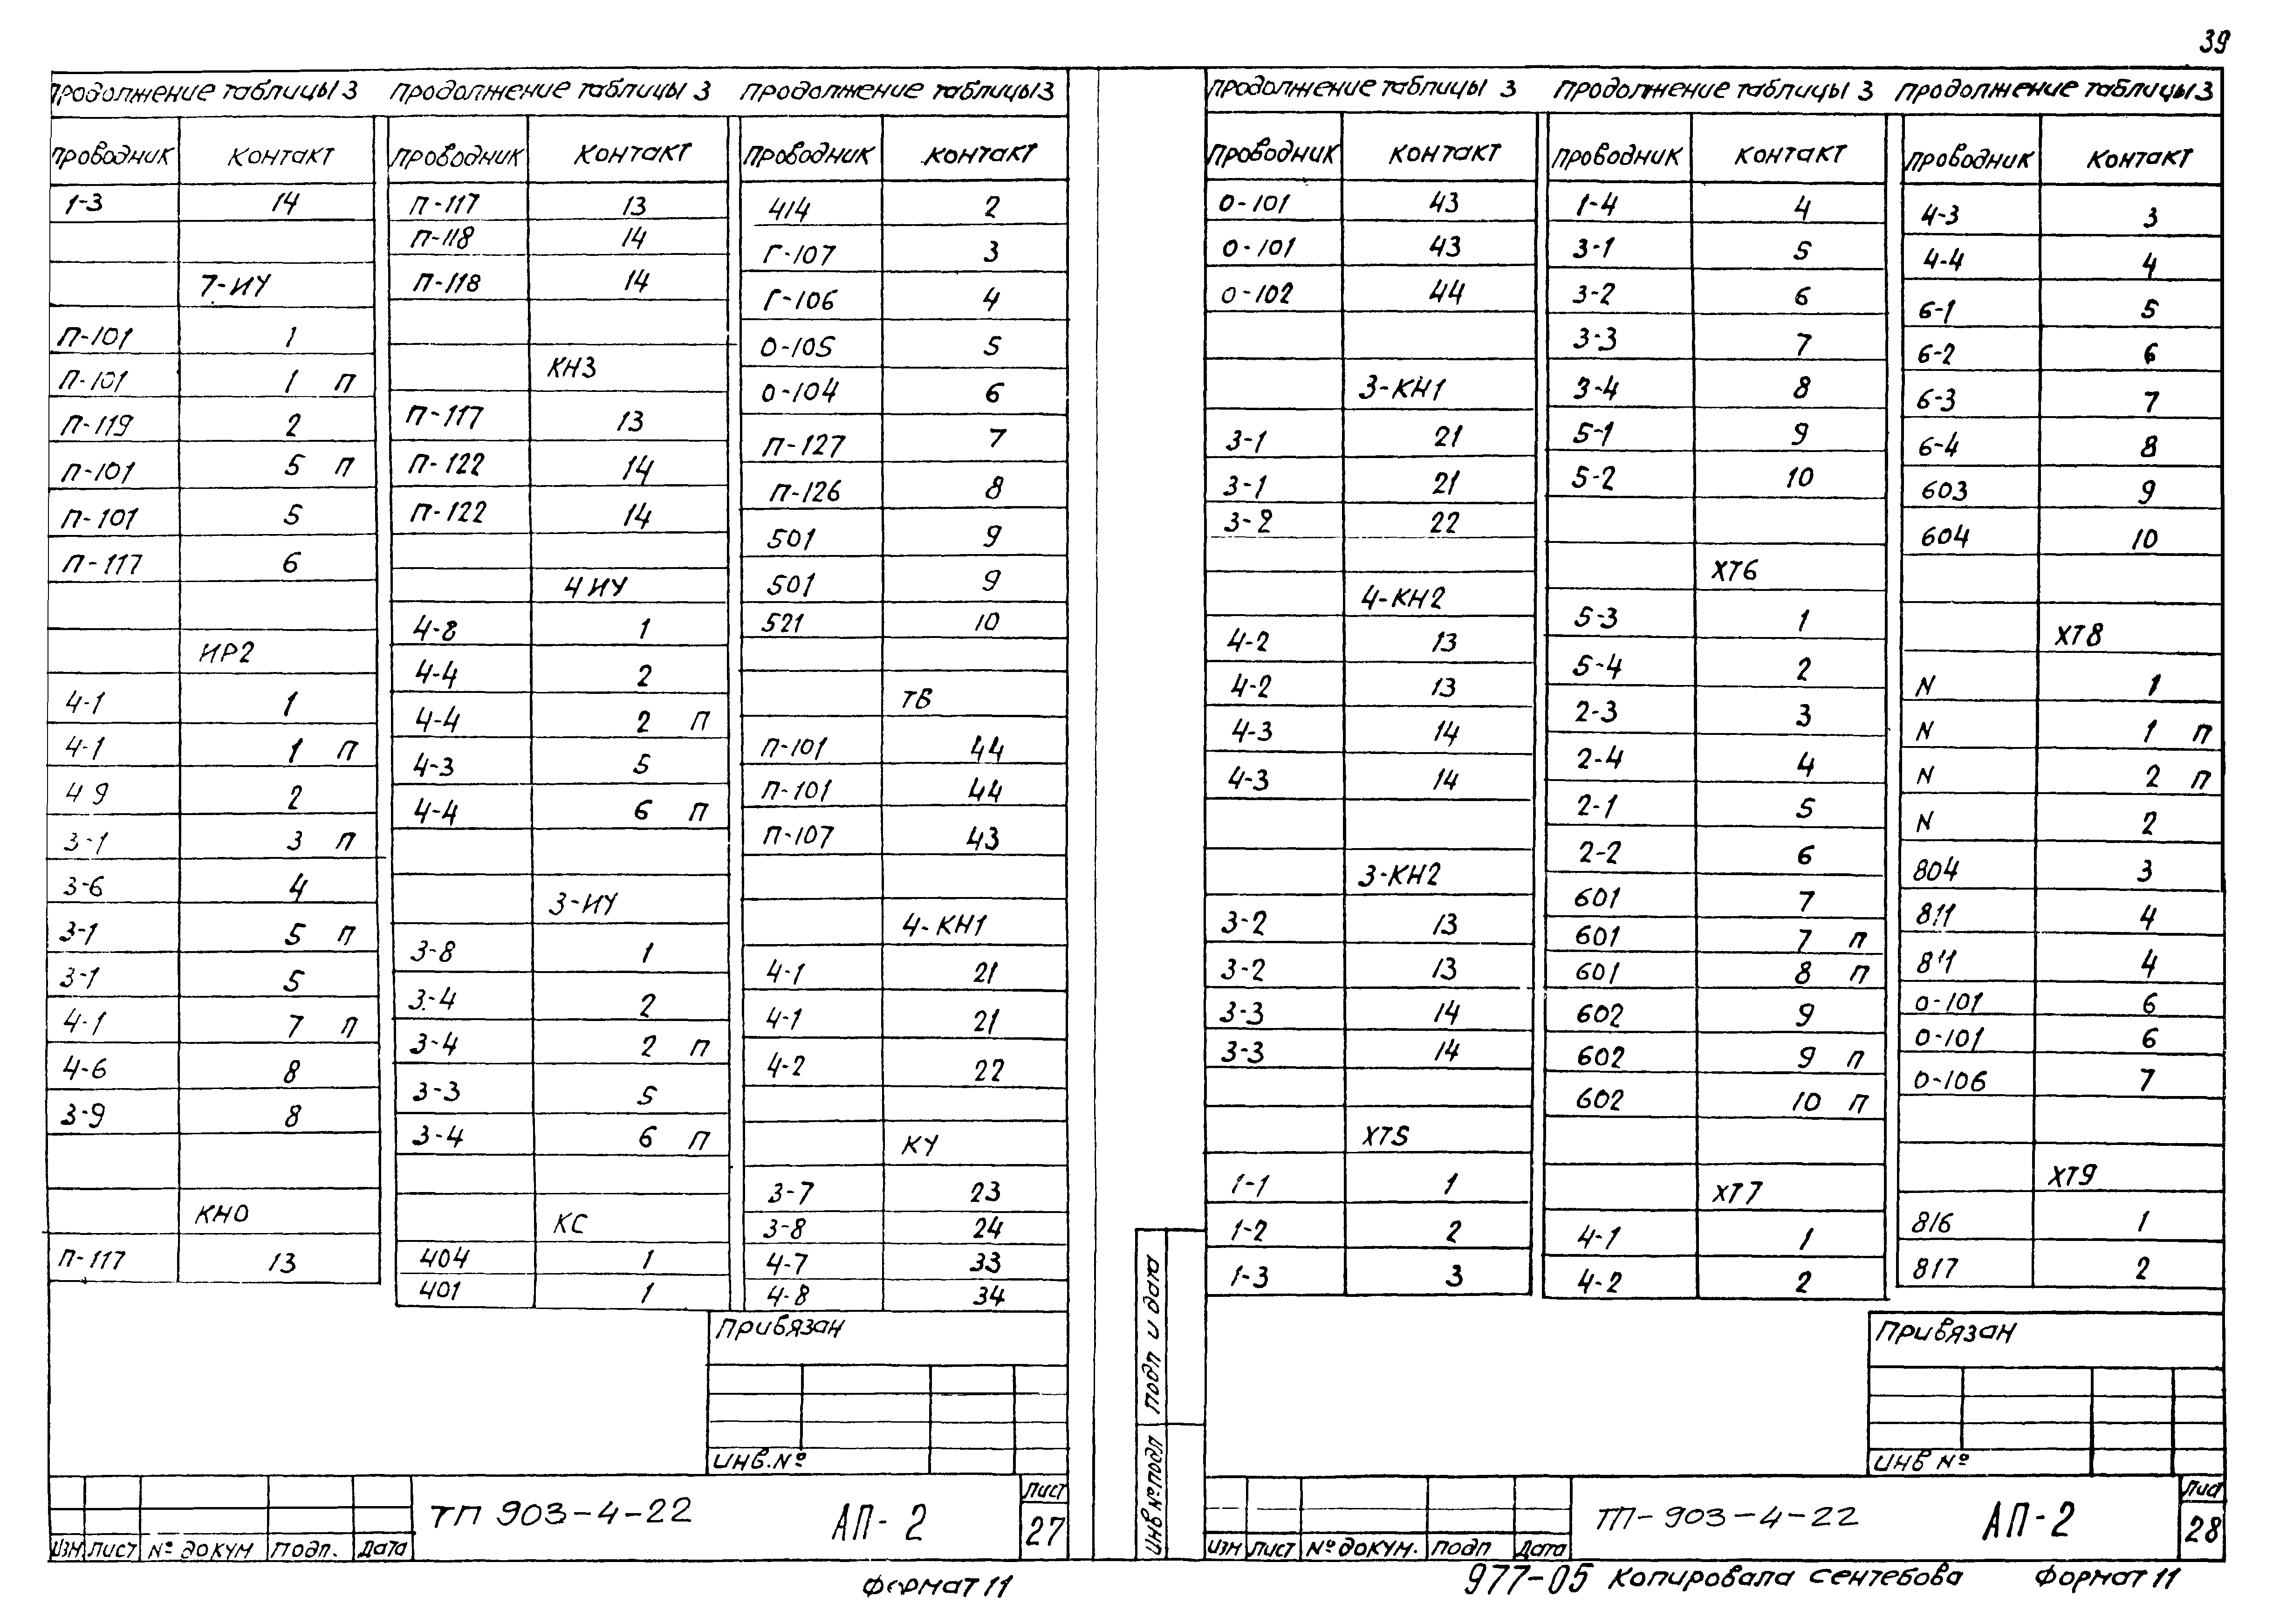 39
Продолжение таблицы 3
Проводник Контакт
1-3 14
7-ИУ
П-101 1
П-101 1 П
П-119 2
П-101 5 П
П-101 5
П-117 6
ИР2
4-1 1
4-1 1 П
4 9 2
3-1 3 П
3-6 4
3-1 5 П
3-1 5
4-1 7 П
4-6 8
3-9 8
КНО
П-117 13
Продолжение таблицы 3
Проводник Контакт
П-117 13
П-118 14
П-118 14
КН3
П-117 13
П-122 14
П-122 14
4ИУ
4-8 1
4-4 2
4-4 2 П
4-3 5
4-4 6 П
3-ИУ
3-8 1
3-4 2
3-4 2 П
3-3 5
3-4 6 П
КС
404 1
401 1
Продолжение таблицы 3
Проводник Контакт
414 2
Г-107 3
Г-106 4
О-105 5
О-104 6
П-127 7
П-126 8
501 9
501 9
521 10
ТВ
П-101 44
П-101 44
П-107 43
4-КН1
4-1 21
4-1 21
4-2 22
КУ
3-7 23
3-8 24
4-7 33
4-8 34
Привязан
Инв.№
Изм Лист № докум Подп. Дата
ТП 903-4-22
АП-2
Лист
27
Формат 11
Продолжение таблицы 3
Проводник Контакт
О-101 43
О-101 43
О-102 44
3-КН1
3-1 21
3-1 21
3-2 22
4-КН2
4-2 13
4-2 13
4-3 14
4-3 14
3-КН2
3-2 13
3-2 13
3-3 14
3-3 14
ХТ5
1-1 1
1-2 2
1-3 3
Продолжение таблицы 3
Проводник Контакт
1-4 4
3-1 5
3-2 6
3-3 7
3-4 8
5-1 9
5-2 10
ХТ6
5-3 1
5-4 2
2-3 3
2-4 4
2-1 5
2-2 6
601 7
601 7 П
601 8 П
602 9
602 9 П
602 10 П
ХТ7
4-1 1
4-2 2
Продолжение таблицы 3
Проводник Контакт
4-3 3
4-4 4
6-1 5
6-2 6
6-3 7
6-4 8
603 9
604 10
ХТ8
N 1
N 1 П
N 2 П
N 2
804 3
811 4
811 4
О-101 6
О-101 6
О-106 7
ХТ9
816 1
817 2
Привязан
Инв №
Инв № подл Подп и дата
Изм Лист № докум. Подп Дата
ТП-903-4-22
АП-2
Лист
28
977-05 Копировала Сентебова Формат 11